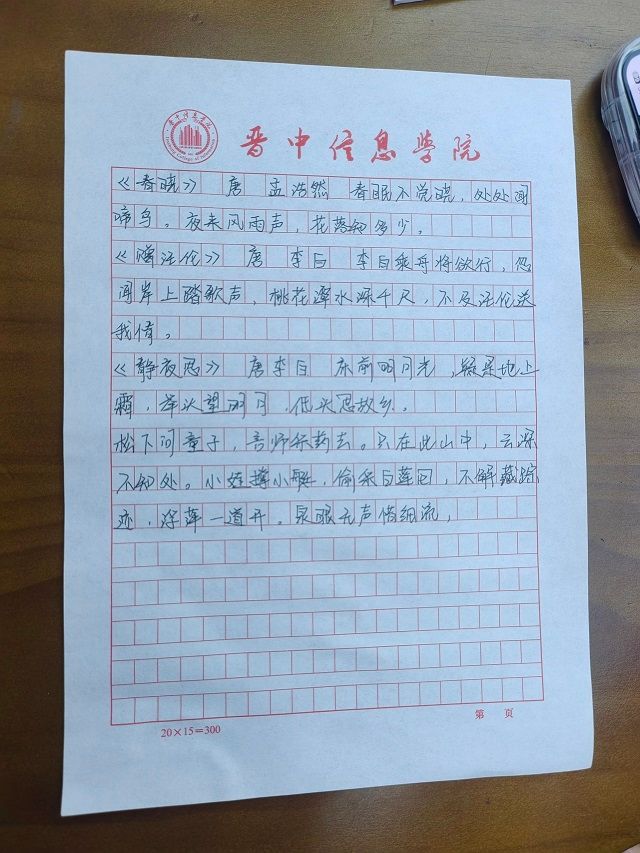 晋中信息学院
《春晓》 唐 孟浩然 春眠不觉晓，处处闻
啼鸟。夜来风雨声，花落知多少。
《赠汪伦》 唐 李白 李白乘舟将欲行，忽
闻岸上踏歌声，桃花潭水深千尺，不及汪伦送
我情。
《静夜思》 唐李白 床前明月光，疑是地上
霜，举头望明月，低头思故乡。
松下问童子，言师采药去。只在此山中，云深
不知处。小娃撑小艇，偷采白莲回，不解藏踪
迹，浮萍一道开。泉眼无声惜细流，
20×15=300
第 页